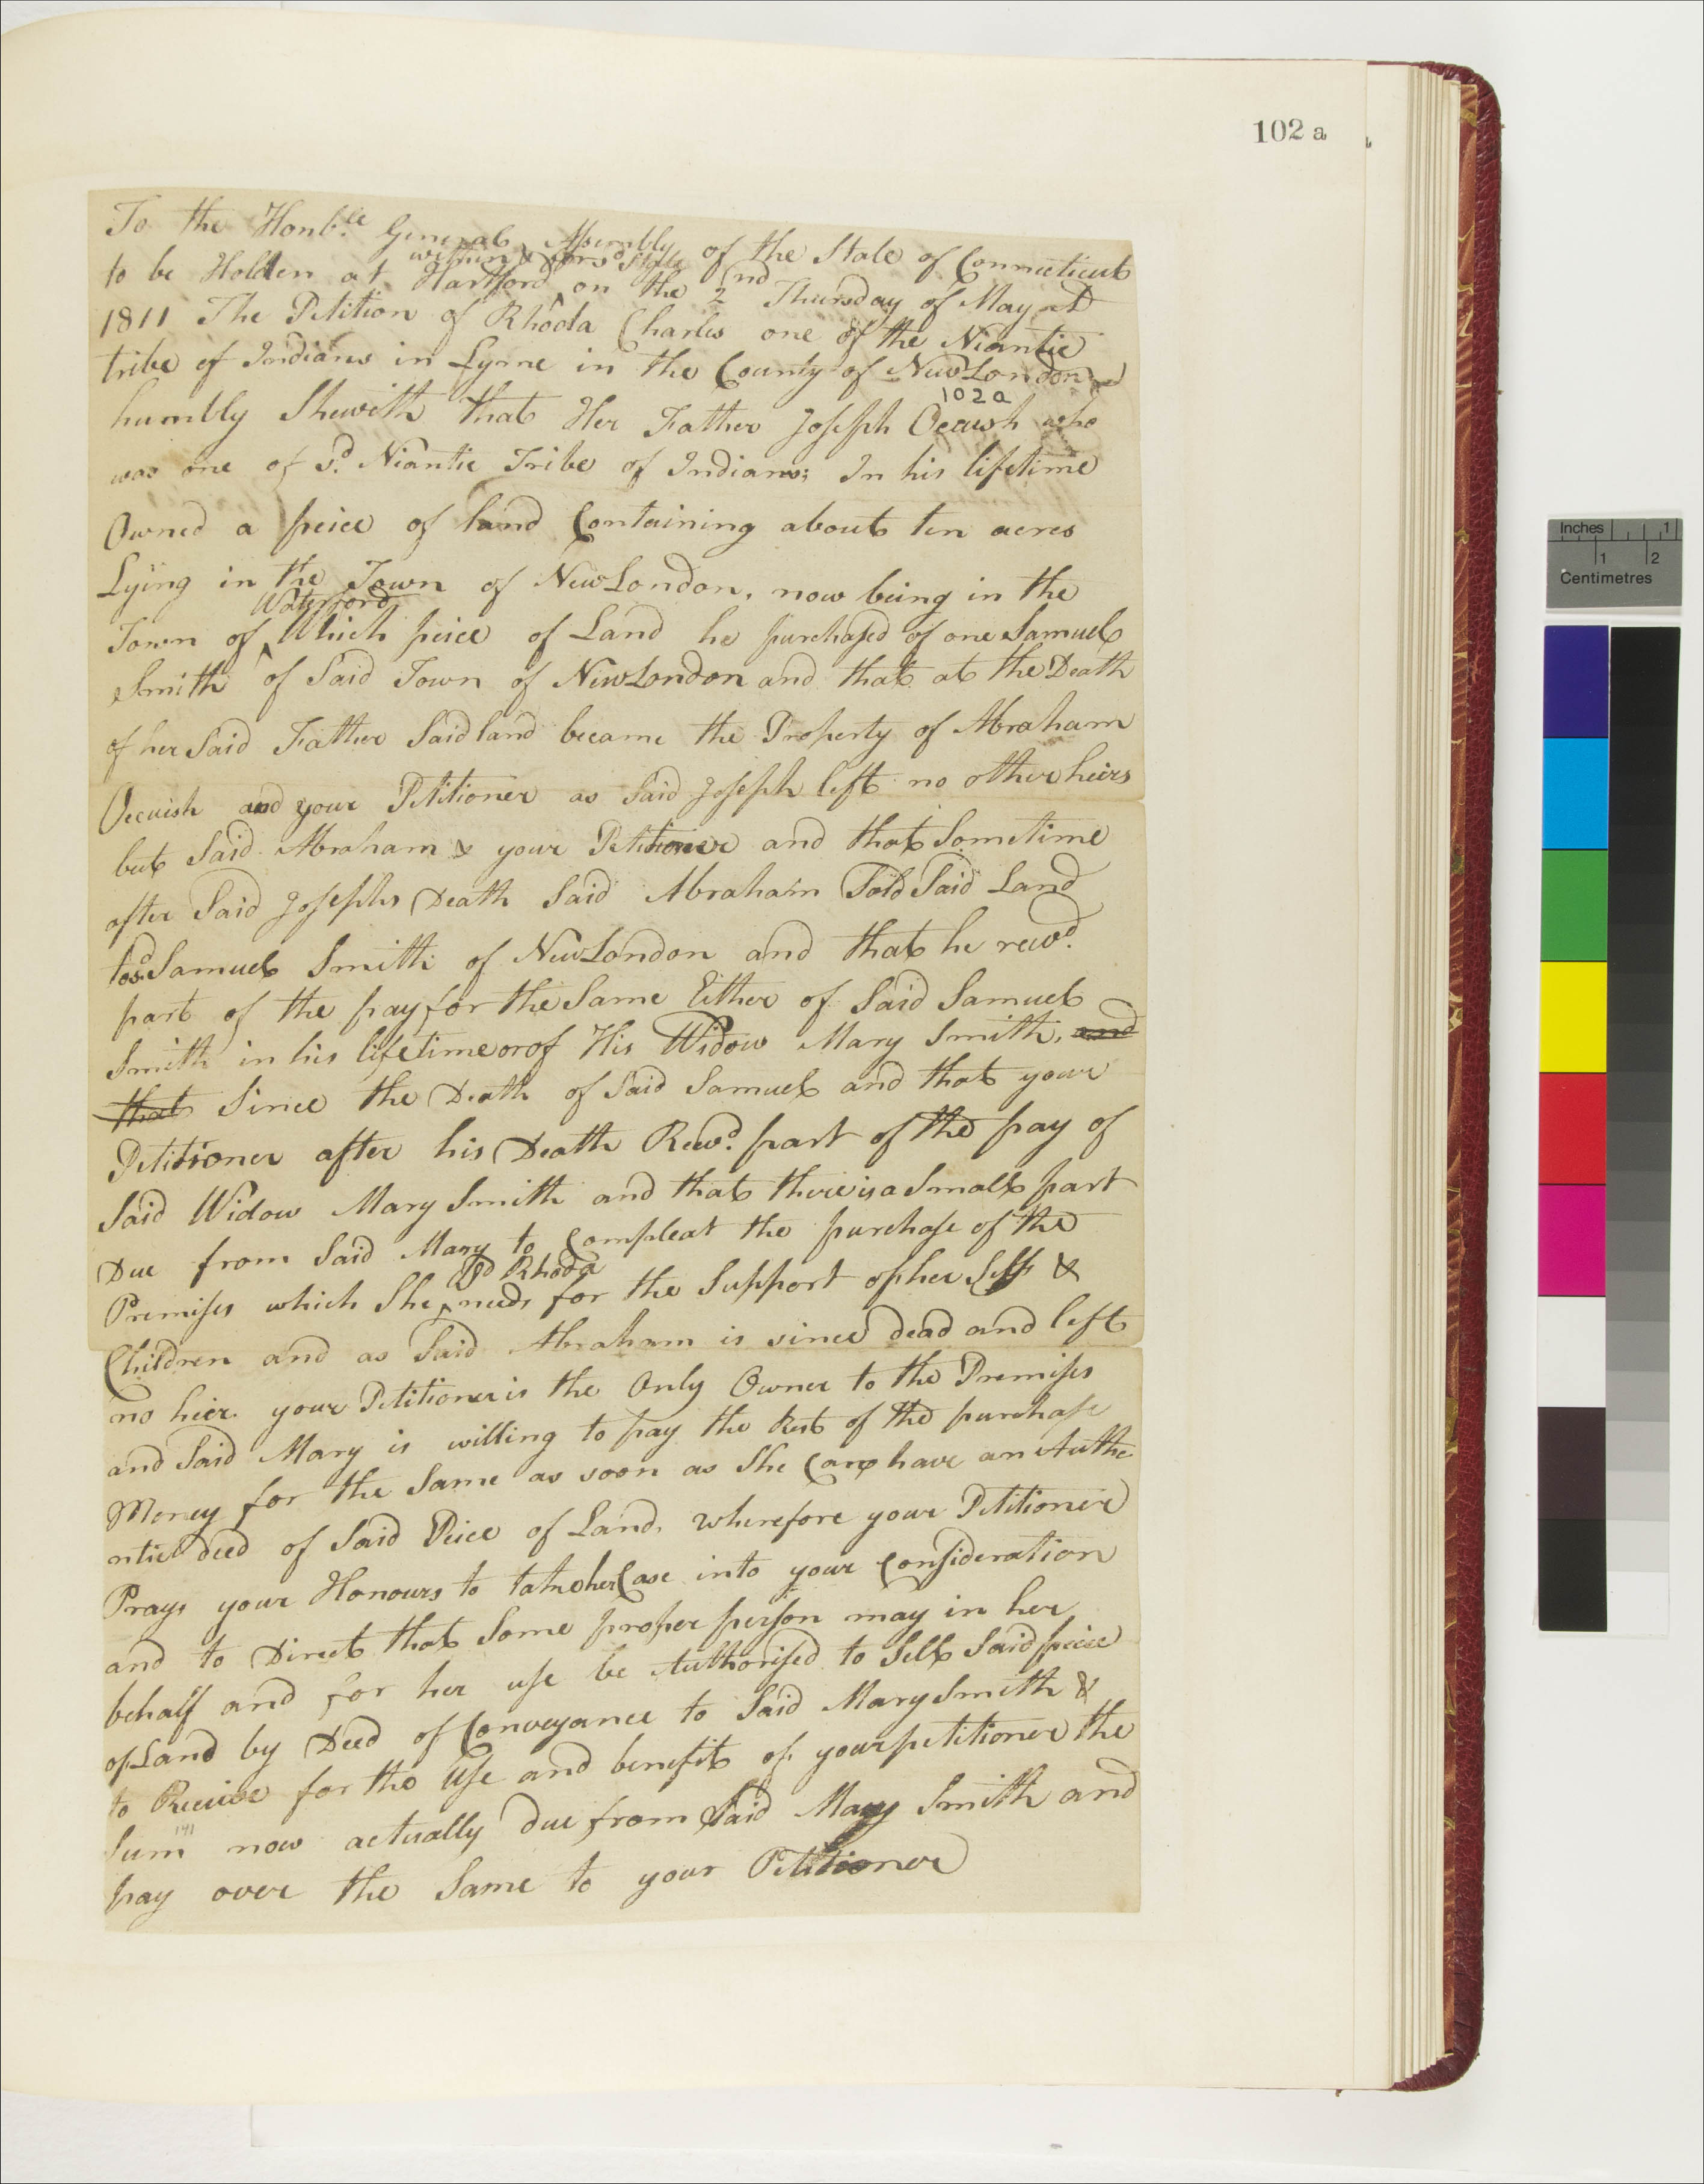 102 a
To the Honb.le General Assembly of the State of Connecticut
within & for sd State
to be Holden at Hartford on the 2nd Thursday of May AD
1811 The Petition of Rhoda Charles one of the Niantic
tribe of Indians in Lyme in the County of New London
102a
humbly Sheweth that Her Father Joseph Occuish who
was one of sd. Niantic Tribe of Indians; In his lifetime
Owned a peice of land Containing about ten acres
Lying in the Town of New London, now being in the
Waterford
Town of ^ Which peice of Land he purchased of one Samuel
Smith of Said Town of New London and that at the Death
of her Said Father Said land became the Property of Abraham
Occuish and your Petitioner as Said Joseph left no other heirs
but Said Abraham & your Petitioner and that Sometime
after Said Josephs Death Said Abraham Sold Said Land
to sd Samuel Smith of New London and that he recvd.
part of the pay for the Same Either of Said Samuel
Smith in his lifetime or of His Widow Mary Smith, and
that Since the Death of Said Samuel and that your
Petitioner after his Death Recvd. part of the pay of
Said Widow Mary Smith and that there is a Small part
Due from Said Mary to Compleat the purchase of the
sd Rhoda
Premises which She ^ needs for the Support of her Self &
Children and as Said Abraham is since dead and left
no heir your Petitioner is the Only Owner to the Premises
and Said Mary is willing to pay the Rest of the purchase
Money for the Same as soon as She Can have an Authe
ntic deed of Said Peice of Land. wherefore your Petitioner
Prays your Honours to take her Case into your Consideration
and to Direct that Some proper person may in her
behalf and for her use be Authorised to Sell Said peice
of Land by Deed of Conveyance to Said Mary Smith &
to Receive for the Use and benefit of your petitioner the
Sum now actually due from Said Mary Smith and
141
pay over the Same to your Petitioner
Inches 1
1 2
Centimetres